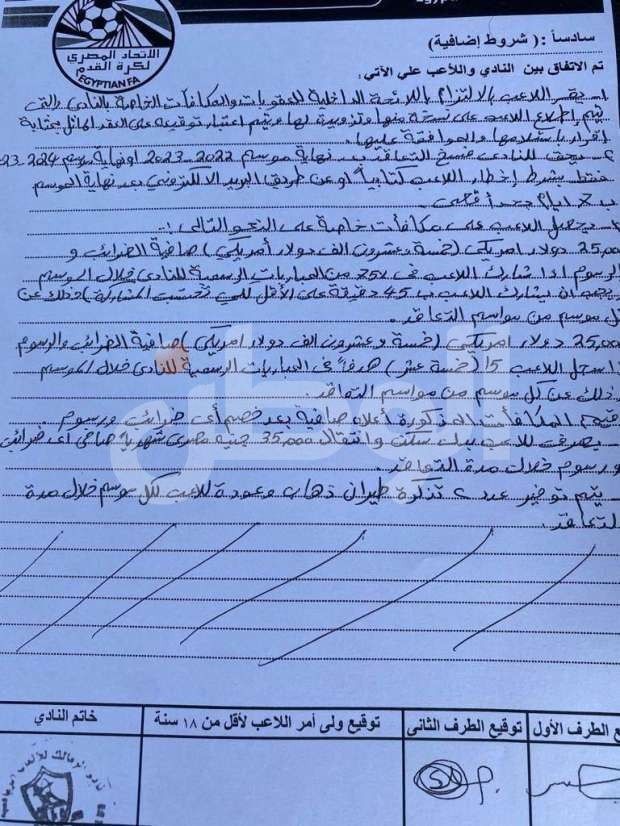 الاتحاد المصرى
لكرة القدم
EGYPTIAN FA
سادساً : ( شروط إضافية )
تم الاتفاق بين النادي واللاعب علي الآتي :
١ـ يقر اللاعب بالالتزام باللائحة الداخلية للعقوبات والمكافآت الخاصة بالنادى والتى
يتم إطلاع اللاعب على نسخة منها وتزويده لها ويتم اعتبار توقيعه على العقد الماثل بمثابة
إقرار باستلامها والموافقة عليها.
٢ـ يحق للنادى فسخ التعاقد بعد نهاية موسم 2022-2023 او نهاية موسم 2024-2023
فقط بشرط إخطار اللاعب كتابياً او عن طريق البريد الالكترونى بعد نهاية الموسم
ب أيام بحد أقصى.
يحصل اللاعب على مكافآت خاصة على النحو التالى :
25,000 دولار امريكى (خمسة وعشرون الف دولار أمريكى) صافية الضرائب و
الرسوم اذا شارك اللاعب فى 75٪ من المباريات الرسمية للنادى خلال الموسم
ويجب ان يشارك اللاعب ب 45 دقيقة على الأقل لكى تحتسب المشاركة وذلك عن
كل موسم من مواسم التعاقد.
25,000 دولار امريكى (خمسة وعشرون الف دولار امريكى) صافية الضرائب والرسوم
اذا سجل اللاعب 15 (خمسة عشر) هدفاً فى المباريات الرسمية للنادى خلال الموسم
وذلك عن كل موسم من مواسم التعاقد.
المكافآت المذكورة أعلاه صافية بعد خصم أى ضرائب ورسوم.
يصرف للاعب بدل سكن وانتقال 35,000 جنيه مصرى شهرياً صافى اى ضرائب
ورسوم خلال مدة التعاقد.
يتم توفير عدد ٢ تذكرة طيران ذهاب وعودة للاعب لكل موسم خلال مدة
التعاقد.
الوطن
توقيع الطرف الأول
توقيع الطرف الثانى
توقيع ولى أمر اللاعب لأقل من ١٨ سنة
خاتم النادي
نادى الزمالك للألعاب الرياضية